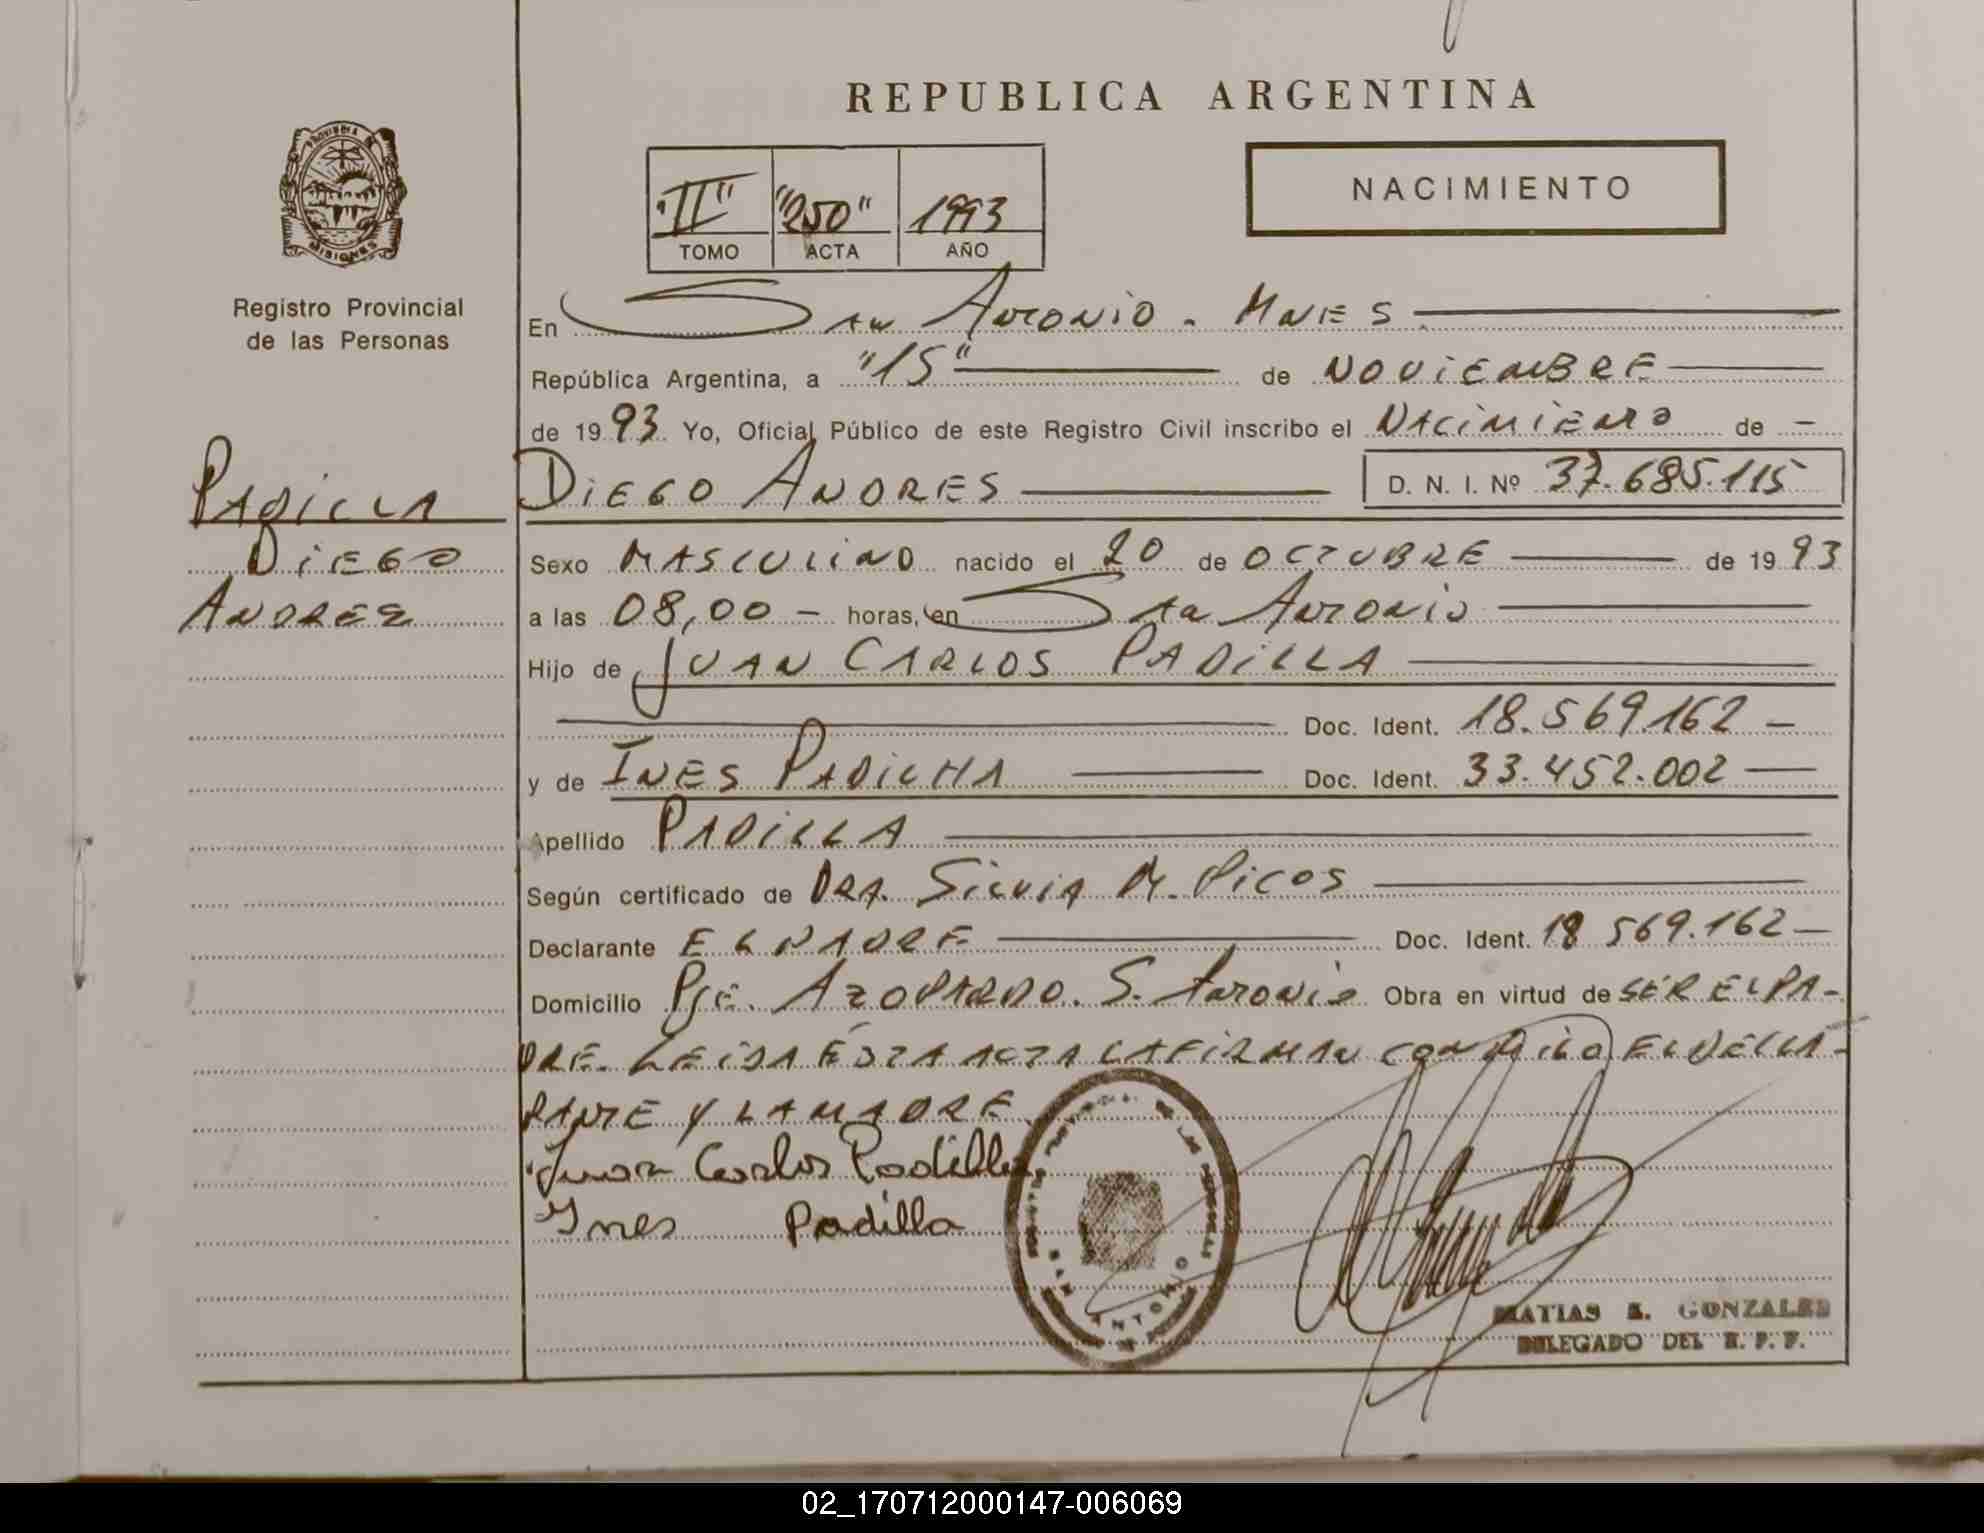 REPUBLICA ARGENTINA
PROVINCIA DE MISIONES
Registro Provincial
de las Personas
"II" "250" 1993
TOMO ACTA AÑO
NACIMIENTO
En San Antonio - Mnes
República Argentina, a "15" de NOVIEMBRE
de 1993 Yo, Oficial Público de este Registro Civil inscribo el NACIMIENTO de -
DIEGO ANDRES D. N. I. Nº 37.685.115
PADILLA
DIEGO
ANDRES
Sexo MASCULINO nacido el 20 de OCTUBRE de 1993
a las 08,00 - horas, en San Antonio
Hijo de JUAN CARLOS PADILLA
Doc. Ident. 18.569.162 -
y de INES PADILHA Doc. Ident. 33.452.002
Apellido PADILLA
Según certificado de DRA. Silvia M. Picos
Declarante EL PADRE Doc. Ident. 18 569.162 -
Domicilio Pje. AZOPARDO. S. Antonio Obra en virtud de SER EL PA-
DRE. LEIDA ÉSTA ACTA LA FIRMAN CONMIGO EL DECLA-
RANTE Y LA MADRE
Juan Carlos Padilla
Ines Padilla
SAN ANTONIO
MATIAS E. GONZALEZ
DELEGADO DEL R. P. P.
02_170712000147-006069